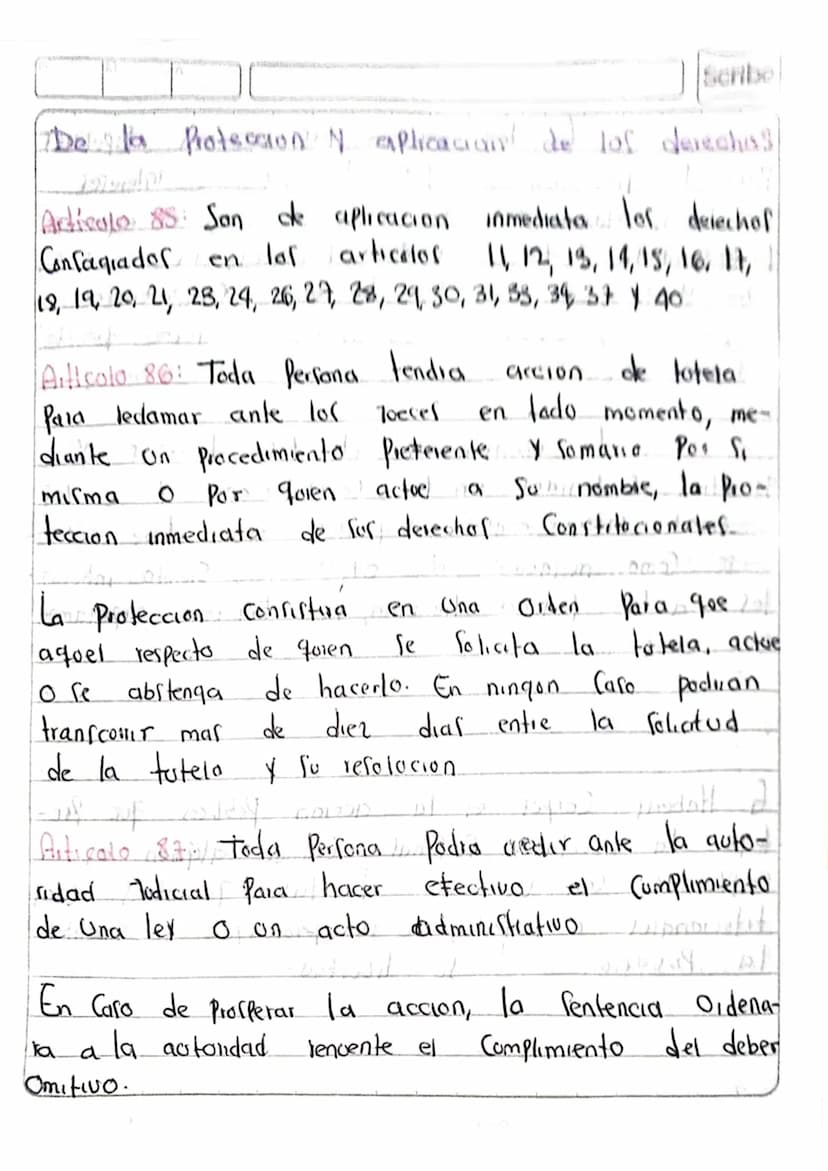 Scribe
De la Proteccion y aplicacion de los derechos
Articulo 85: Son de aplicacion inmediata los derechos
Consagrados en los articulos 11, 12, 13, 14, 15, 16, 17,
18, 19, 20, 21, 23, 24, 26, 27, 28, 29, 30, 31, 33, 34, 37 y 40
Articulo 86: Toda Persona tendra accion de tutela
Para reclamar ante los Jueces en todo momento, me-
diante un procedimiento Preferente y Sumario Por Si
misma o Por quien actue a Su nombre, la Pro-
teccion inmediata de sus derechos Constitucionales.
La Proteccion consistira en una Orden Para que
aquel respecto de quien se Solicita la tutela, actue
o se abstenga de hacerlo. En ningun Caso podran
transcurrir mas de diez dias entre la Solicitud
de la tutela y su resolucion
Articulo 87: Toda Persona Podra ante la auto-
ridad Judicial Para hacer efectivo el Cumplimiento
de una ley o un acto administrativo
En Caso de Prosperar la accion, la Sentencia Ordena-
ra a la autoridad renuente el Cumplimiento del deber
Omitivo.